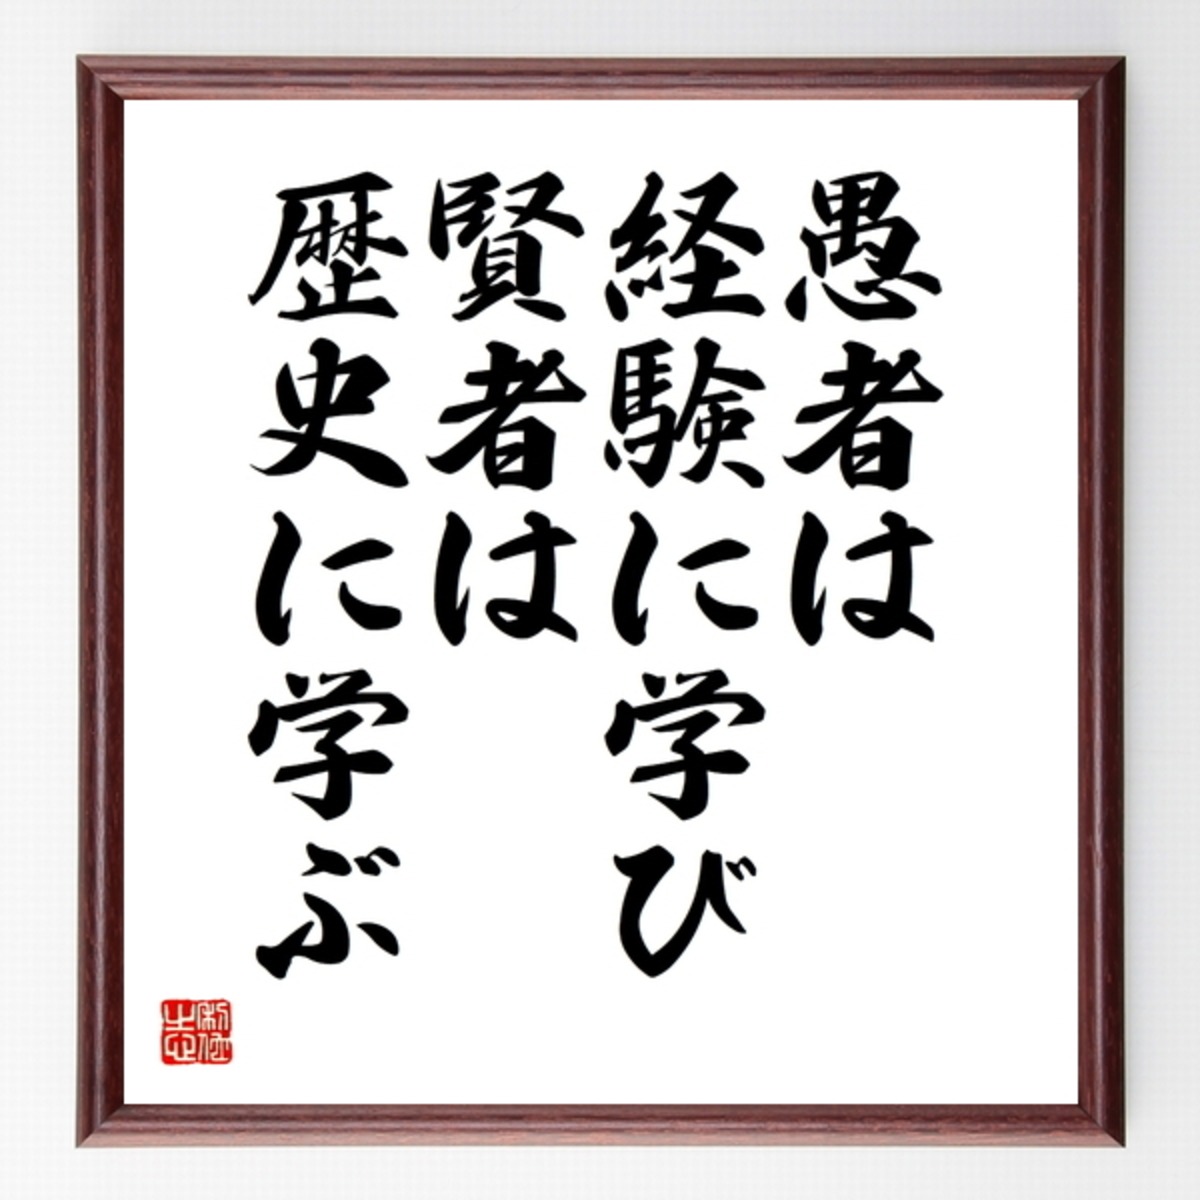 愚者は
経験に学び
賢者は
歴史に学ぶ